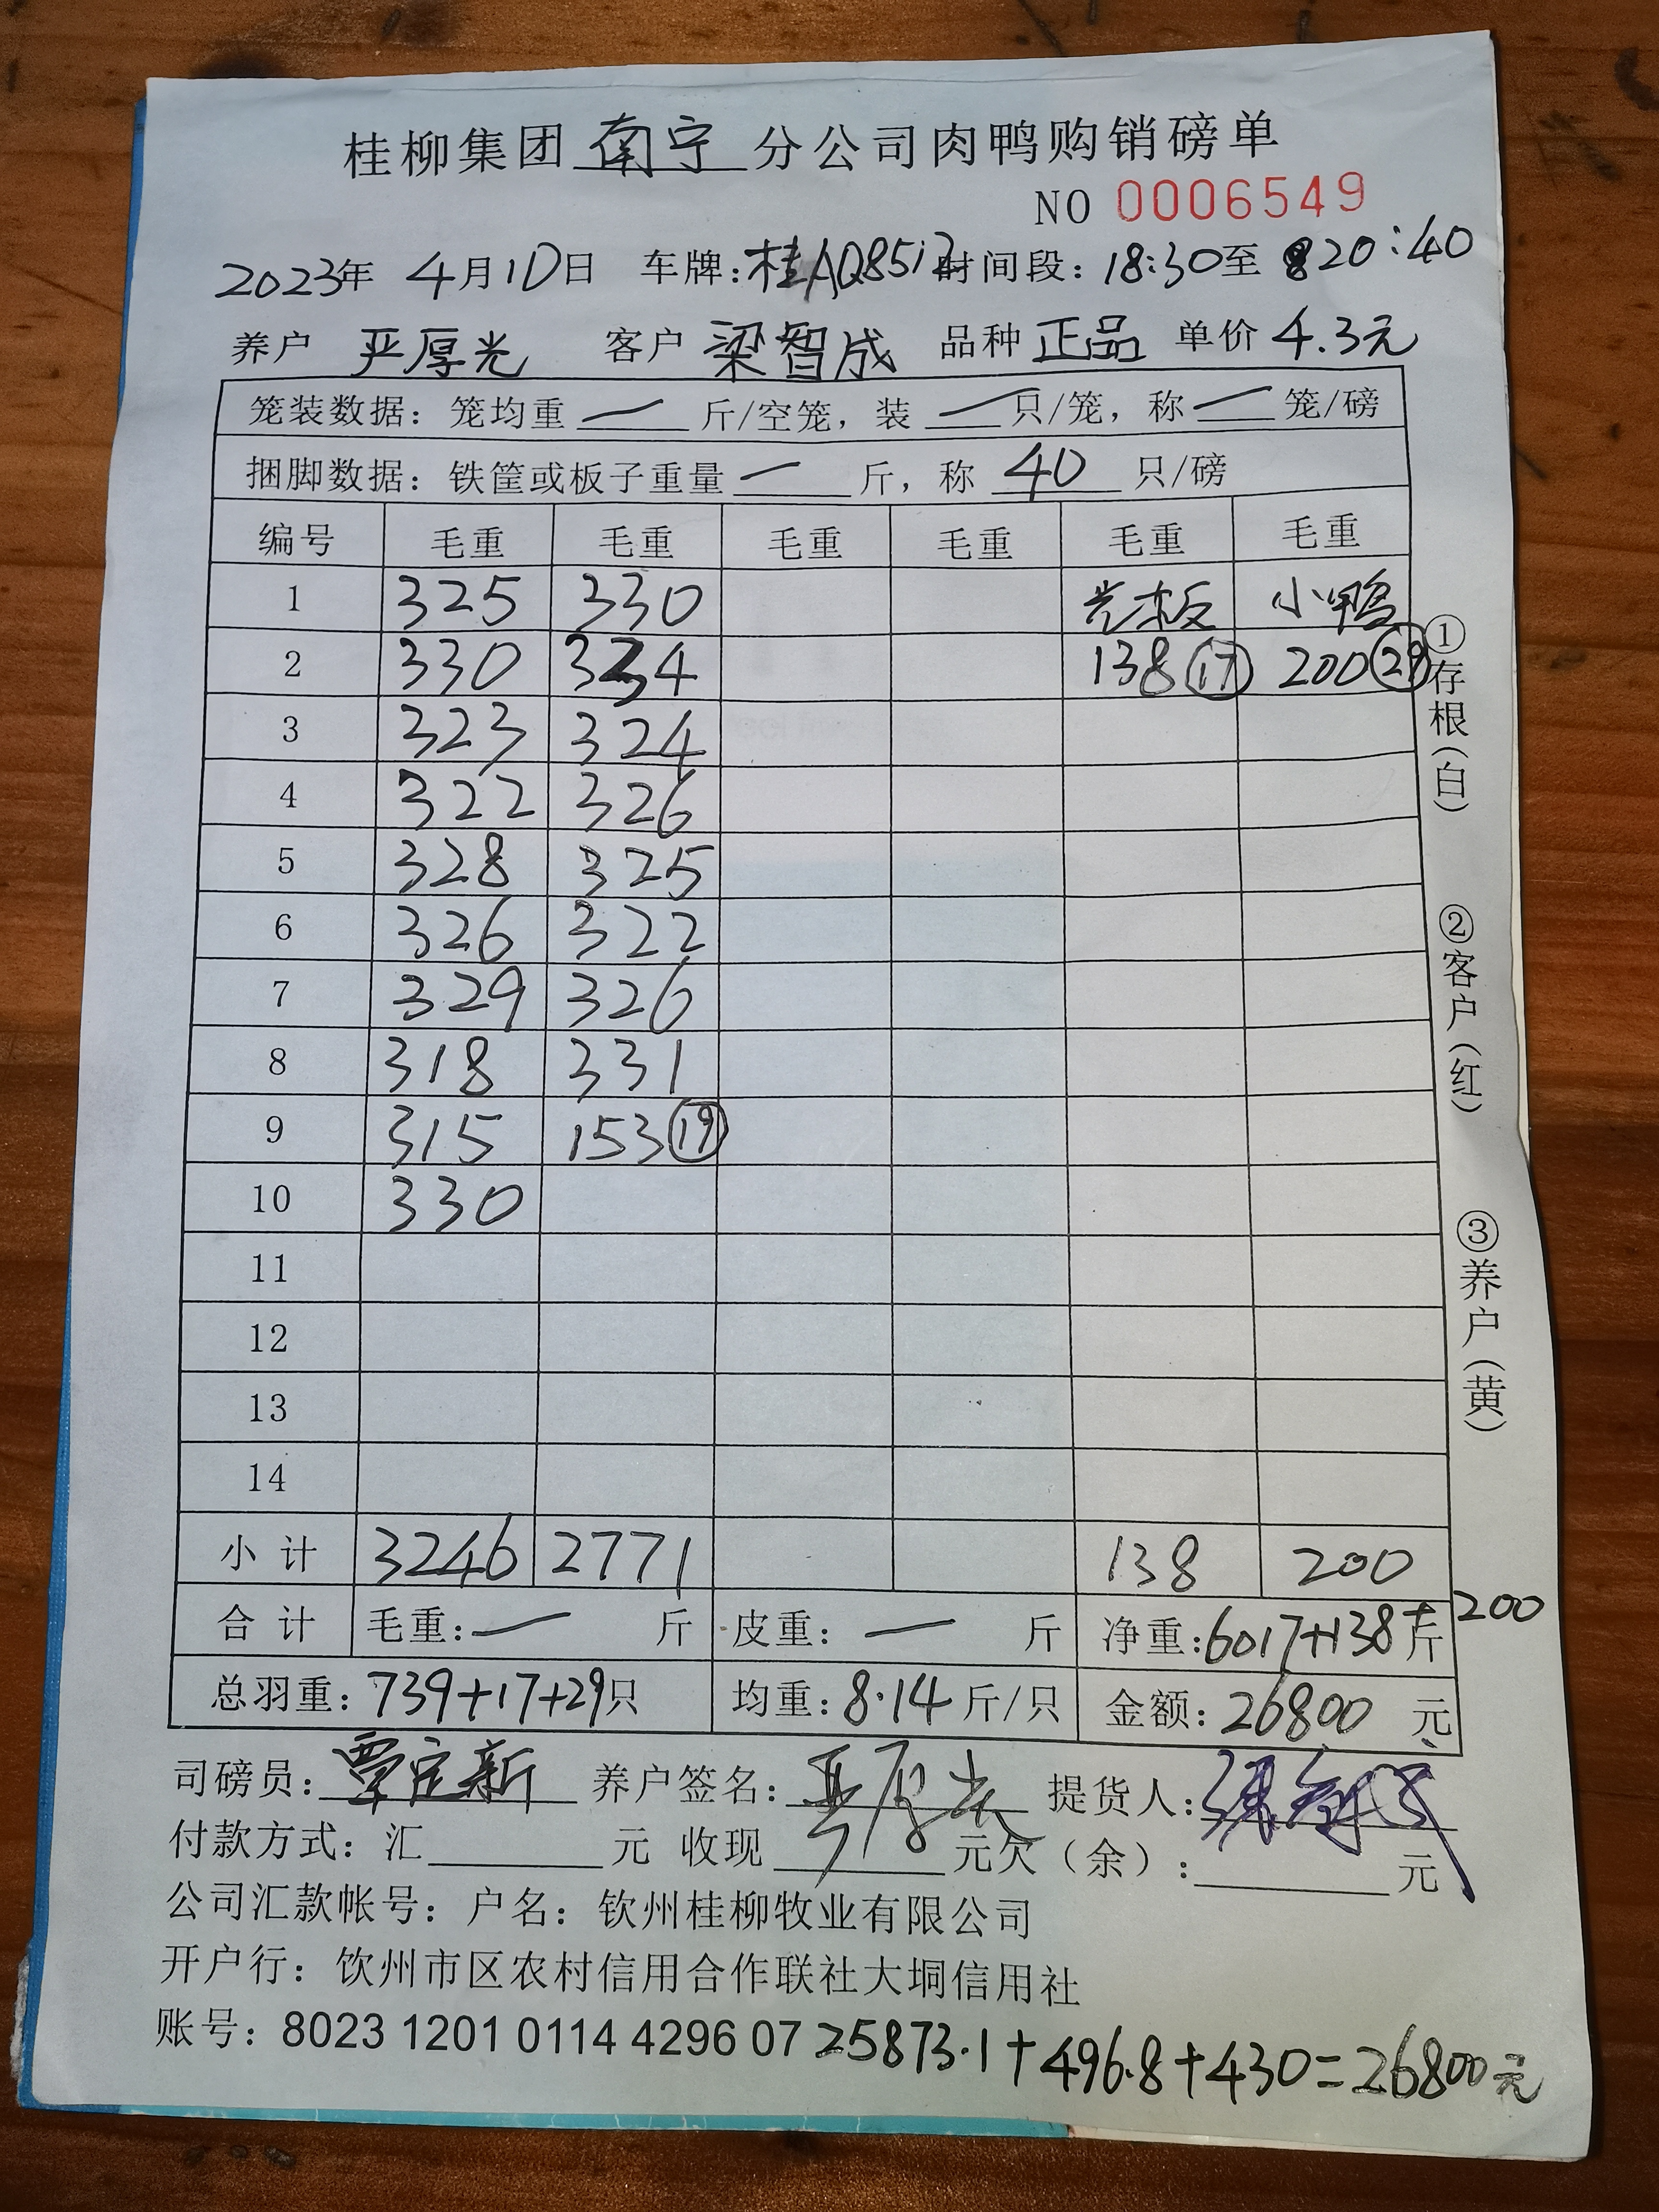 桂柳集团南宁分公司肉鸭购销磅单
NO 0006549
2023年 4月10日 车牌:桂AQ8512 时间段:18:30至 20:40
养户 严厚光 客户 梁智成 品种 正品 单价 4.3元
笼装数据:笼均重 — 斤/空笼,装 — 只/笼,称 — 笼/磅
捆脚数据:铁筐或板子重量 — 斤,称 40 只/磅
编号 毛重 毛重 毛重 毛重 毛重 毛重
1 325 330 光板 小鸭
2 330 334 138 ⑰ 200 ㉙
3 323 324
4 322 326
5 328 325
6 326 322
7 329 326
8 318 331
9 315 153 ⑲
10 330
11
12
13
14
小计 3246 2771 138 200
合计 毛重:— 斤 皮重:— 斤 净重:6017+138+200斤
总羽重:739+17+29只 均重:8.14斤/只 金额:26800 元
司磅员:覃定新 养户签名:严厚光 提货人:
付款方式:汇 元 收现 元欠(余): 元
公司汇款帐号:户名:钦州桂柳牧业有限公司
开户行:钦州市区农村信用合作联社大垌信用社
账号:8023 1201 0114 4296 07 25873.1+496.8+430=26800元
①存根(白)
②客户(红)
③养户(黄)